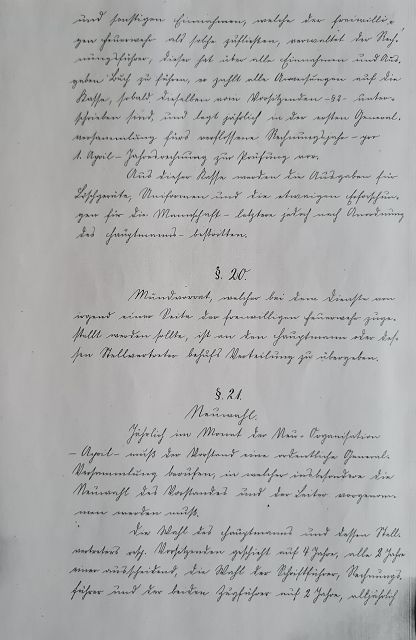 und sonstigen Einnahmen, welche der freiwilli-
gen Feuerwehr als solche zufließen, verwaltet der Rech-
nungsführer, dieser hat über alle Einnahmen und Aus-
gaben Buch zu führen, er zahlt alle Anweisungen auf die
Kasse, sobald dieselben vom Vorsitzenden -§2- unter-
schrieben sind, und legt jährlich in der ersten General-
versammlung fürs verflossene Rechnungsjahr - per
1. April - Jahresrechnung zur Prüfung vor.
Aus dieser Kasse werden die Ausgaben für
Löschgeräte, Uniformen und die etwaigen Erfrischun-
gen für die Mannschaft - letztere jedoch nach Anordnung
des Hauptmanns - bestritten.
§. 20.
Mundvorrat, welcher bei dem Dienste von
irgend einer Seite der freiwilligen Feuerwehr zuge-
stellt werden sollte, ist an den Hauptmann oder des-
sen Stellvertreter behufs Verteilung zu übergeben.
§. 21.
Neuwahl.
Jährlich im Monat der Neu-Organisation
- April - muß der Vorstand eine ordentliche General-
Versammlung berufen, in welcher insbesondere die
Neuwahl des Vorstandes und der Leiter vorgenom-
men werden muß.
Die Wahl des Hauptmanns und dessen Stell-
vertreters resp. Vorsitzenden geschieht auf 4 Jahre, alle 2 Jahre
einer ausscheidend, die Wahl der Schriftführer, Rechnungs-
führer und der beiden Zugführer auf 2 Jahre, alljährlich